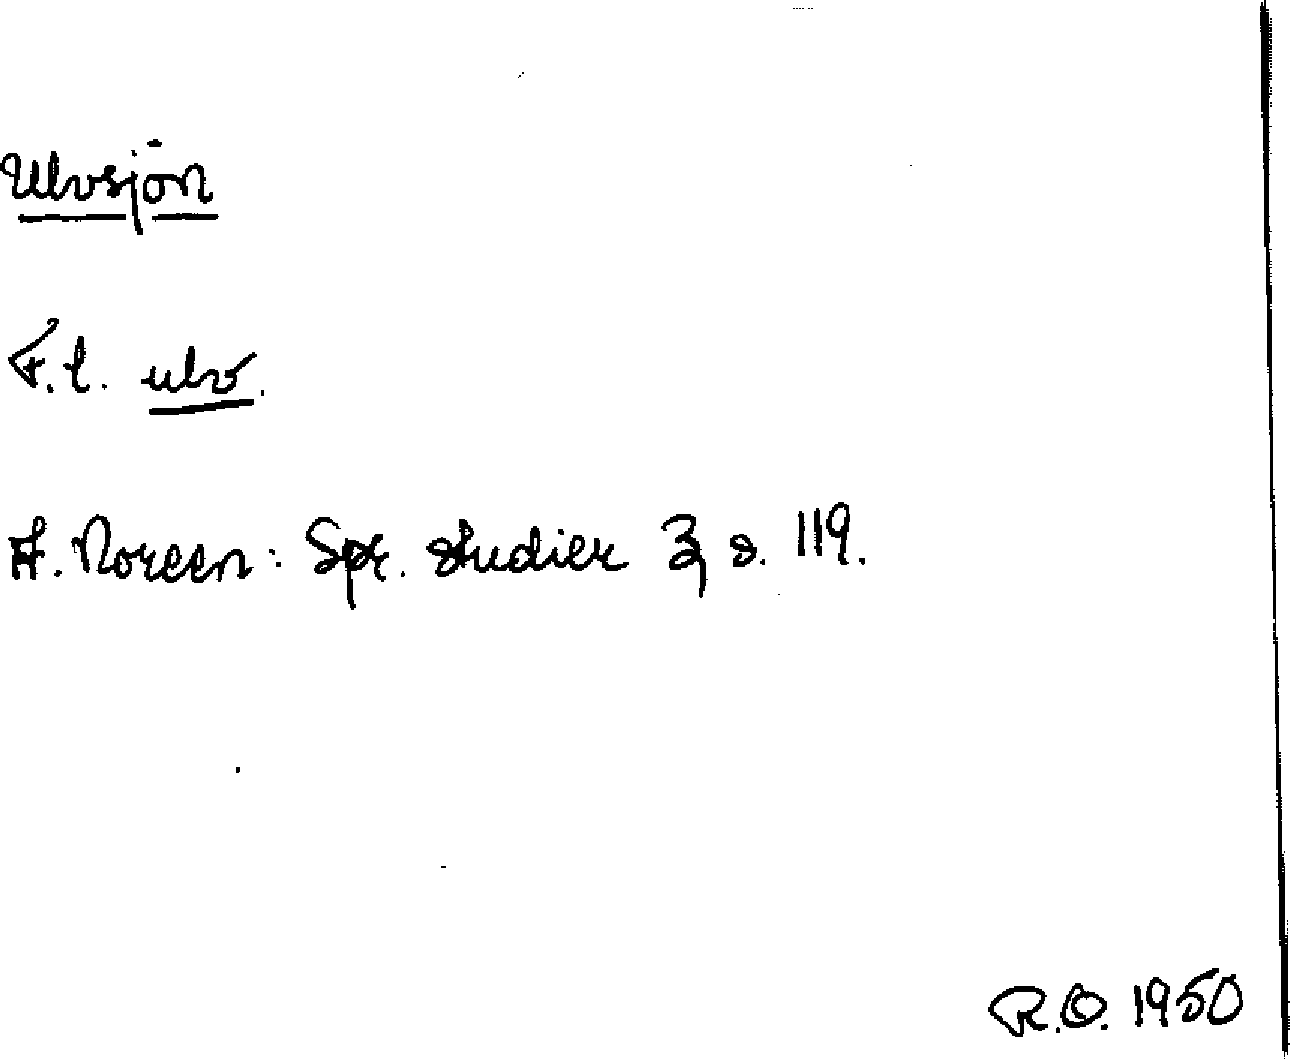 Ulvsjön
F.l. ulv.
A. Noreen: Spr. studier 3, s. 119.
R.O. 1950